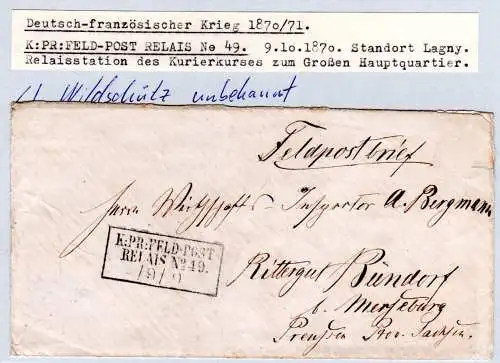 Deutsch-französischer Krieg 1870/71.
K:PR:FELD-POST RELAIS No 49. 9.10.1870. Standort Lagny.
Relaisstation des Kurierkurses zum Großen Hauptquartier.
Wildschütz unbekannt
Feldpostbrief
Herrn Wirthschafts-Inspector A. Bergmann
K:PR:FELD-POST
RELAIS No 49.
Rittergut Bündorf
b. Merseburg
Preußen Prov. Sachsen.